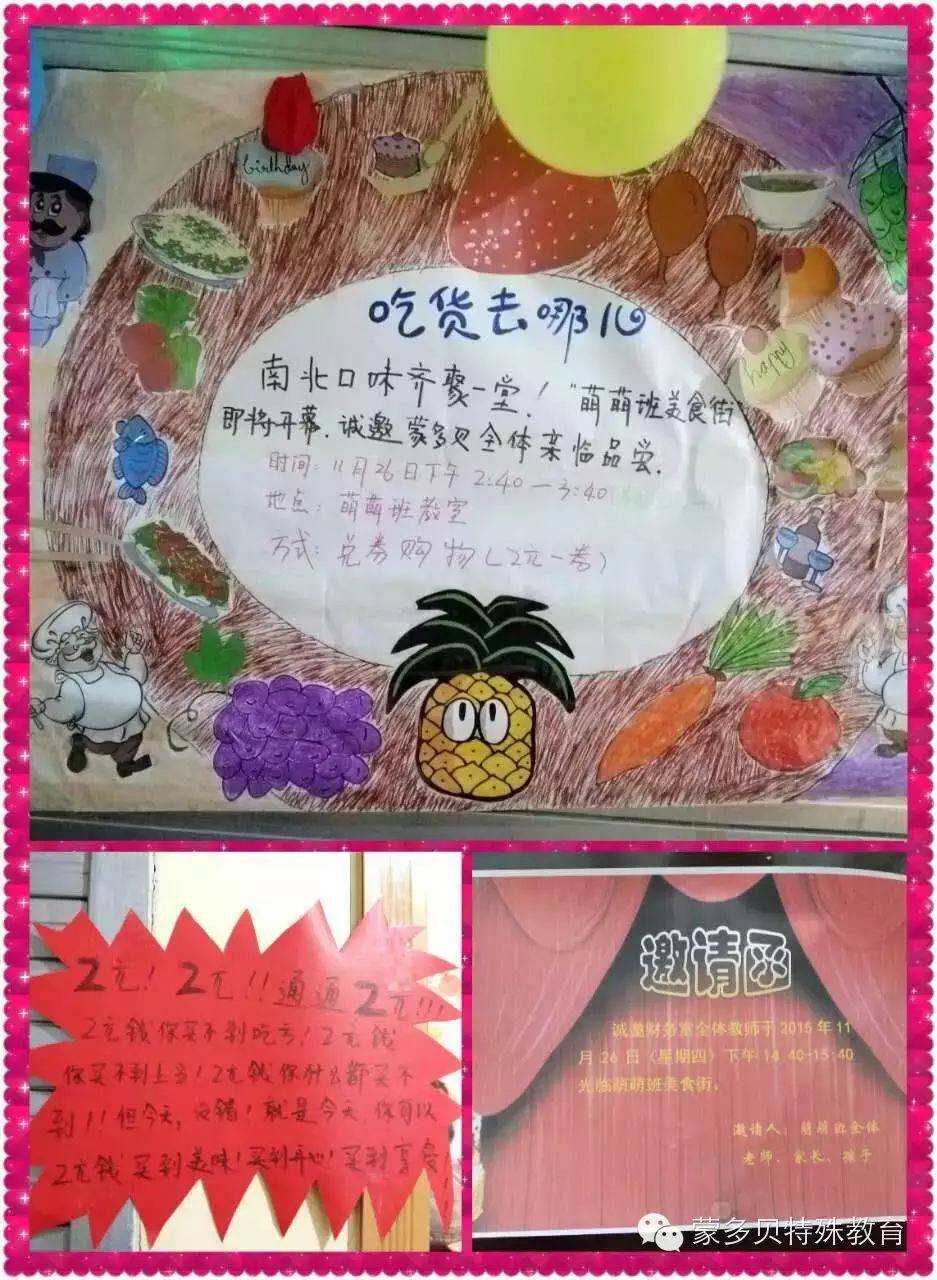 birthday
吃货去哪儿
南北口味齐聚一堂！“萌萌班美食街”
即将开幕.诚邀蒙多贝全体亲临品尝.
时间：11月26日下午2:40—3:40
地点：萌萌班教室
方式：兑券购物（2元一券）
happy
2元！2元！！通通2元！！！
2元钱你买不到吃亏！2元钱
你买不到上当！2元钱你什么都买不
到！！但今天，没错！就是今天，你可以
2元钱买到美味！买到开心！买到享受！
邀请函
诚邀财务室全体教师于2015年11
月26日（星期四）下午14:40-15:40
光临萌萌班美食街。
邀请人：萌萌班全体
老师、家长、孩子
蒙多贝特殊教育